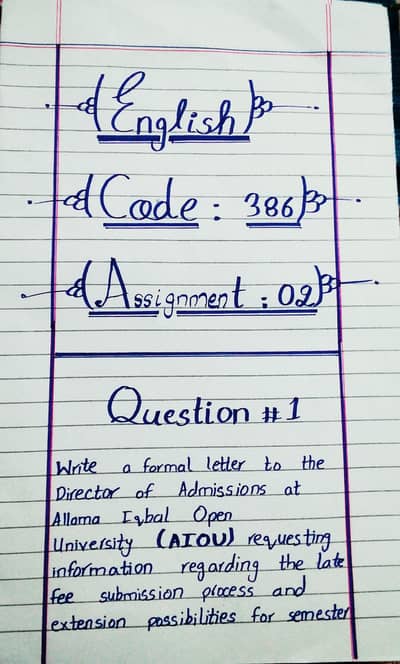 English
Code : 386
Assignment : 02
Question # 1
Write a formal letter to the
Director of Admissions at
Allama Iqbal Open
University (AIOU) requesting
information regarding the late
fee submission process and
extension possibilities for semester